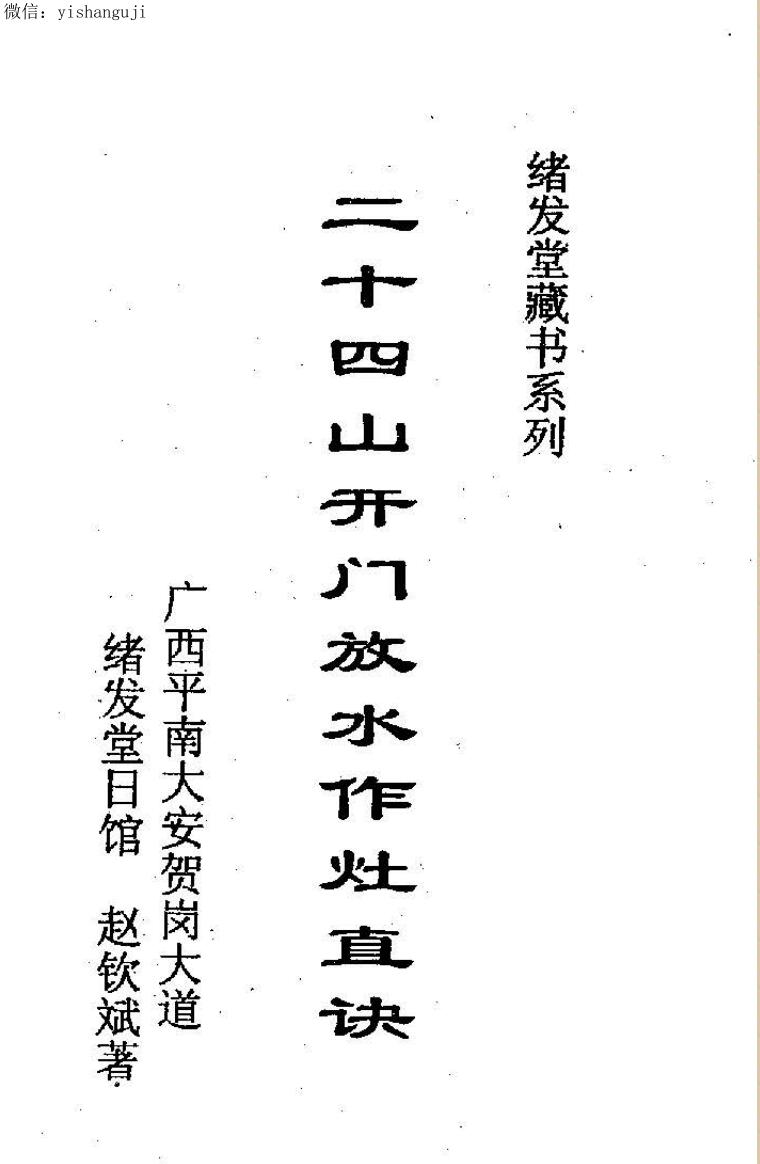 微信：yishanguji
绪发堂藏书系列
二十四山开门放水作灶直诀
广西平南大安贺岗大道
绪发堂日馆 赵钦斌著